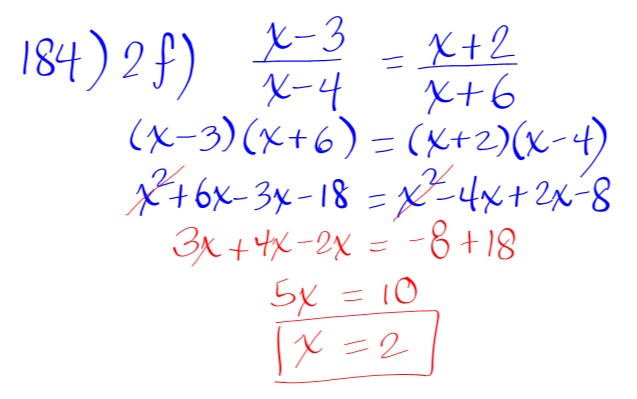 184) 2f) x-3/x-4 = x+2/x+6
(x-3)(x+6) = (x+2)(x-4)
x²+6x-3x-18 = x²-4x+2x-8
3x+4x-2x = -8+18
5x = 10
x = 2